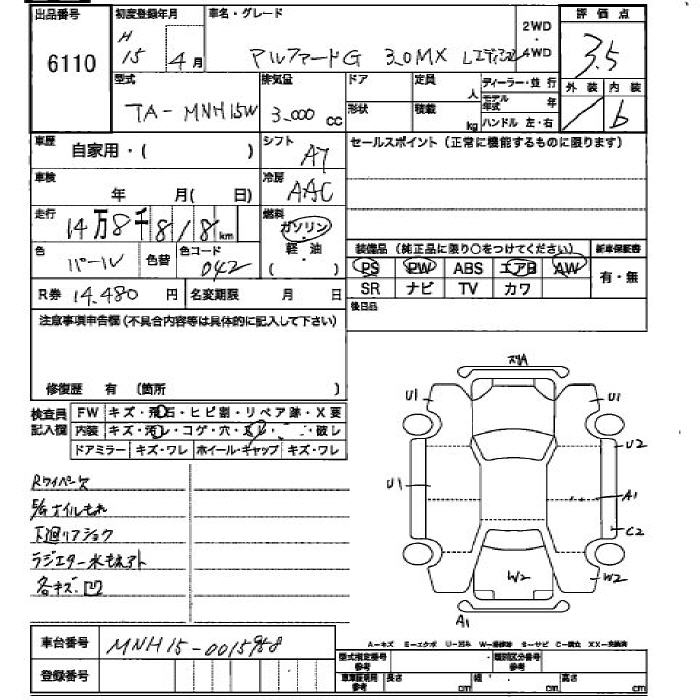 出品番号 初度登録年月 車名・グレード 2WD 評価点
6110 H 15年 4月 アルファードG 3.0MX Lエディション 4WD 3.5
型式 排気量 ドア 定員 ディーラー・並行 外装 内装
人 モデル年式 年
TA-MNH15W 3,000cc 形状 積載 kg ハンドル 左・右 b
車歴 自家用・( ) シフト AT セールスポイント(正常に機能するものに限ります)
車検 年 月( 日) 冷房 AAC
走行 14万8千818km 燃料 ガソリン・軽油( )
装備品(純正品に限り○をつけてください) 新車保証書
色 パール 色替 色コード 042
PS PW ABS エアB AW 有・無
R券 14,480円 名変期限 月 日 SR ナビ TV カワ
後日品
注意事項申告欄(不具合内容等は具体的に記入して下さい)
修復歴 有 (箇所 )
検査員記入欄 FW キズ・飛石・ヒビ割・リペア跡・X要
内装 キズ・汚レ・コゲ・穴・破レ
ドアミラー キズ・ワレ ホイール・キャップ キズ・ワレ
スリA
U1 U1
U2
U1 A1
C2
W2 W2
A1
Rワイパー欠
E/Gオイルもれ
下廻リフショク
ラジエター水もれアト
各キズ.凹
車台番号 MNH15-0015958
登録番号
A-キズ E-エクボ U-凹み W-補修跡 S-サビ C-腐食 XX-交換済
型式指定番号参考 類別区分番号参考
車庫証明用参考 長さ cm 幅 cm 高さ cm